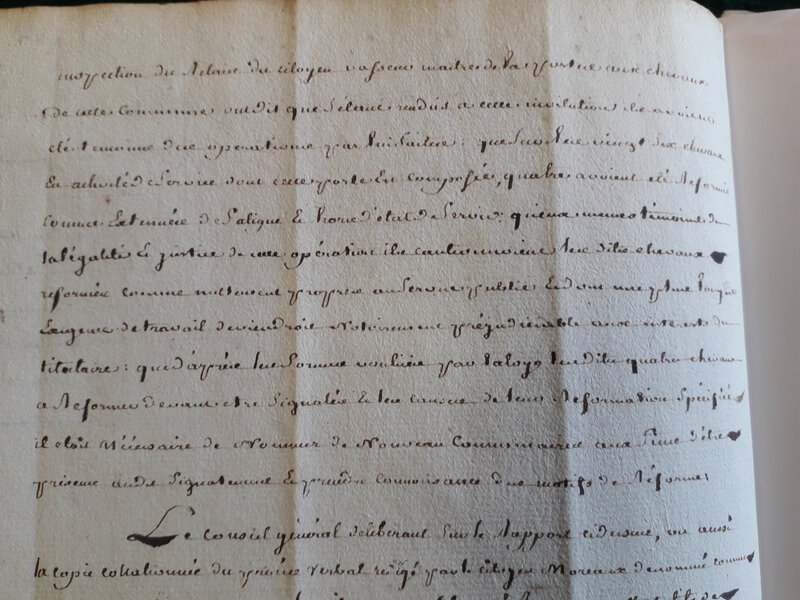 inspection du relais du citoyen Vasseur maitre de la poste aux chevaux
de cette commune ont dit que s'étant rendus a cette invitation ils avoient
été temoins des operations par lui faites: que sur les vingt six chevaux
en activité de service dont cette poste est composée, quatre avoient été réformés
comme exténués de fatigue et hors d'état de service: qu'eux mêmes témoins de
la légalité et justice de cette opération ils les dits chevaux
reformés comme nullement propres au service public et dont une plus longue
exigence de travail deviendroit notoirement préjudiciable aux interets du
titulaire: que d'après les formes voulues par la loy les dits quatre chevaux
a réformer devant etre signalés et les causes de leur réformation spécifiées
il etoit nécessaire de nommer de nouveau commissaires aux fins d'être
présens audit signalement et prendre connoissance des motifs de réforme;
Le conseil général deliberant sur le rapport cidessus, vu aussi
la copie collationnée du procès verbal redigé par le citoyen Moreaux denommé comme